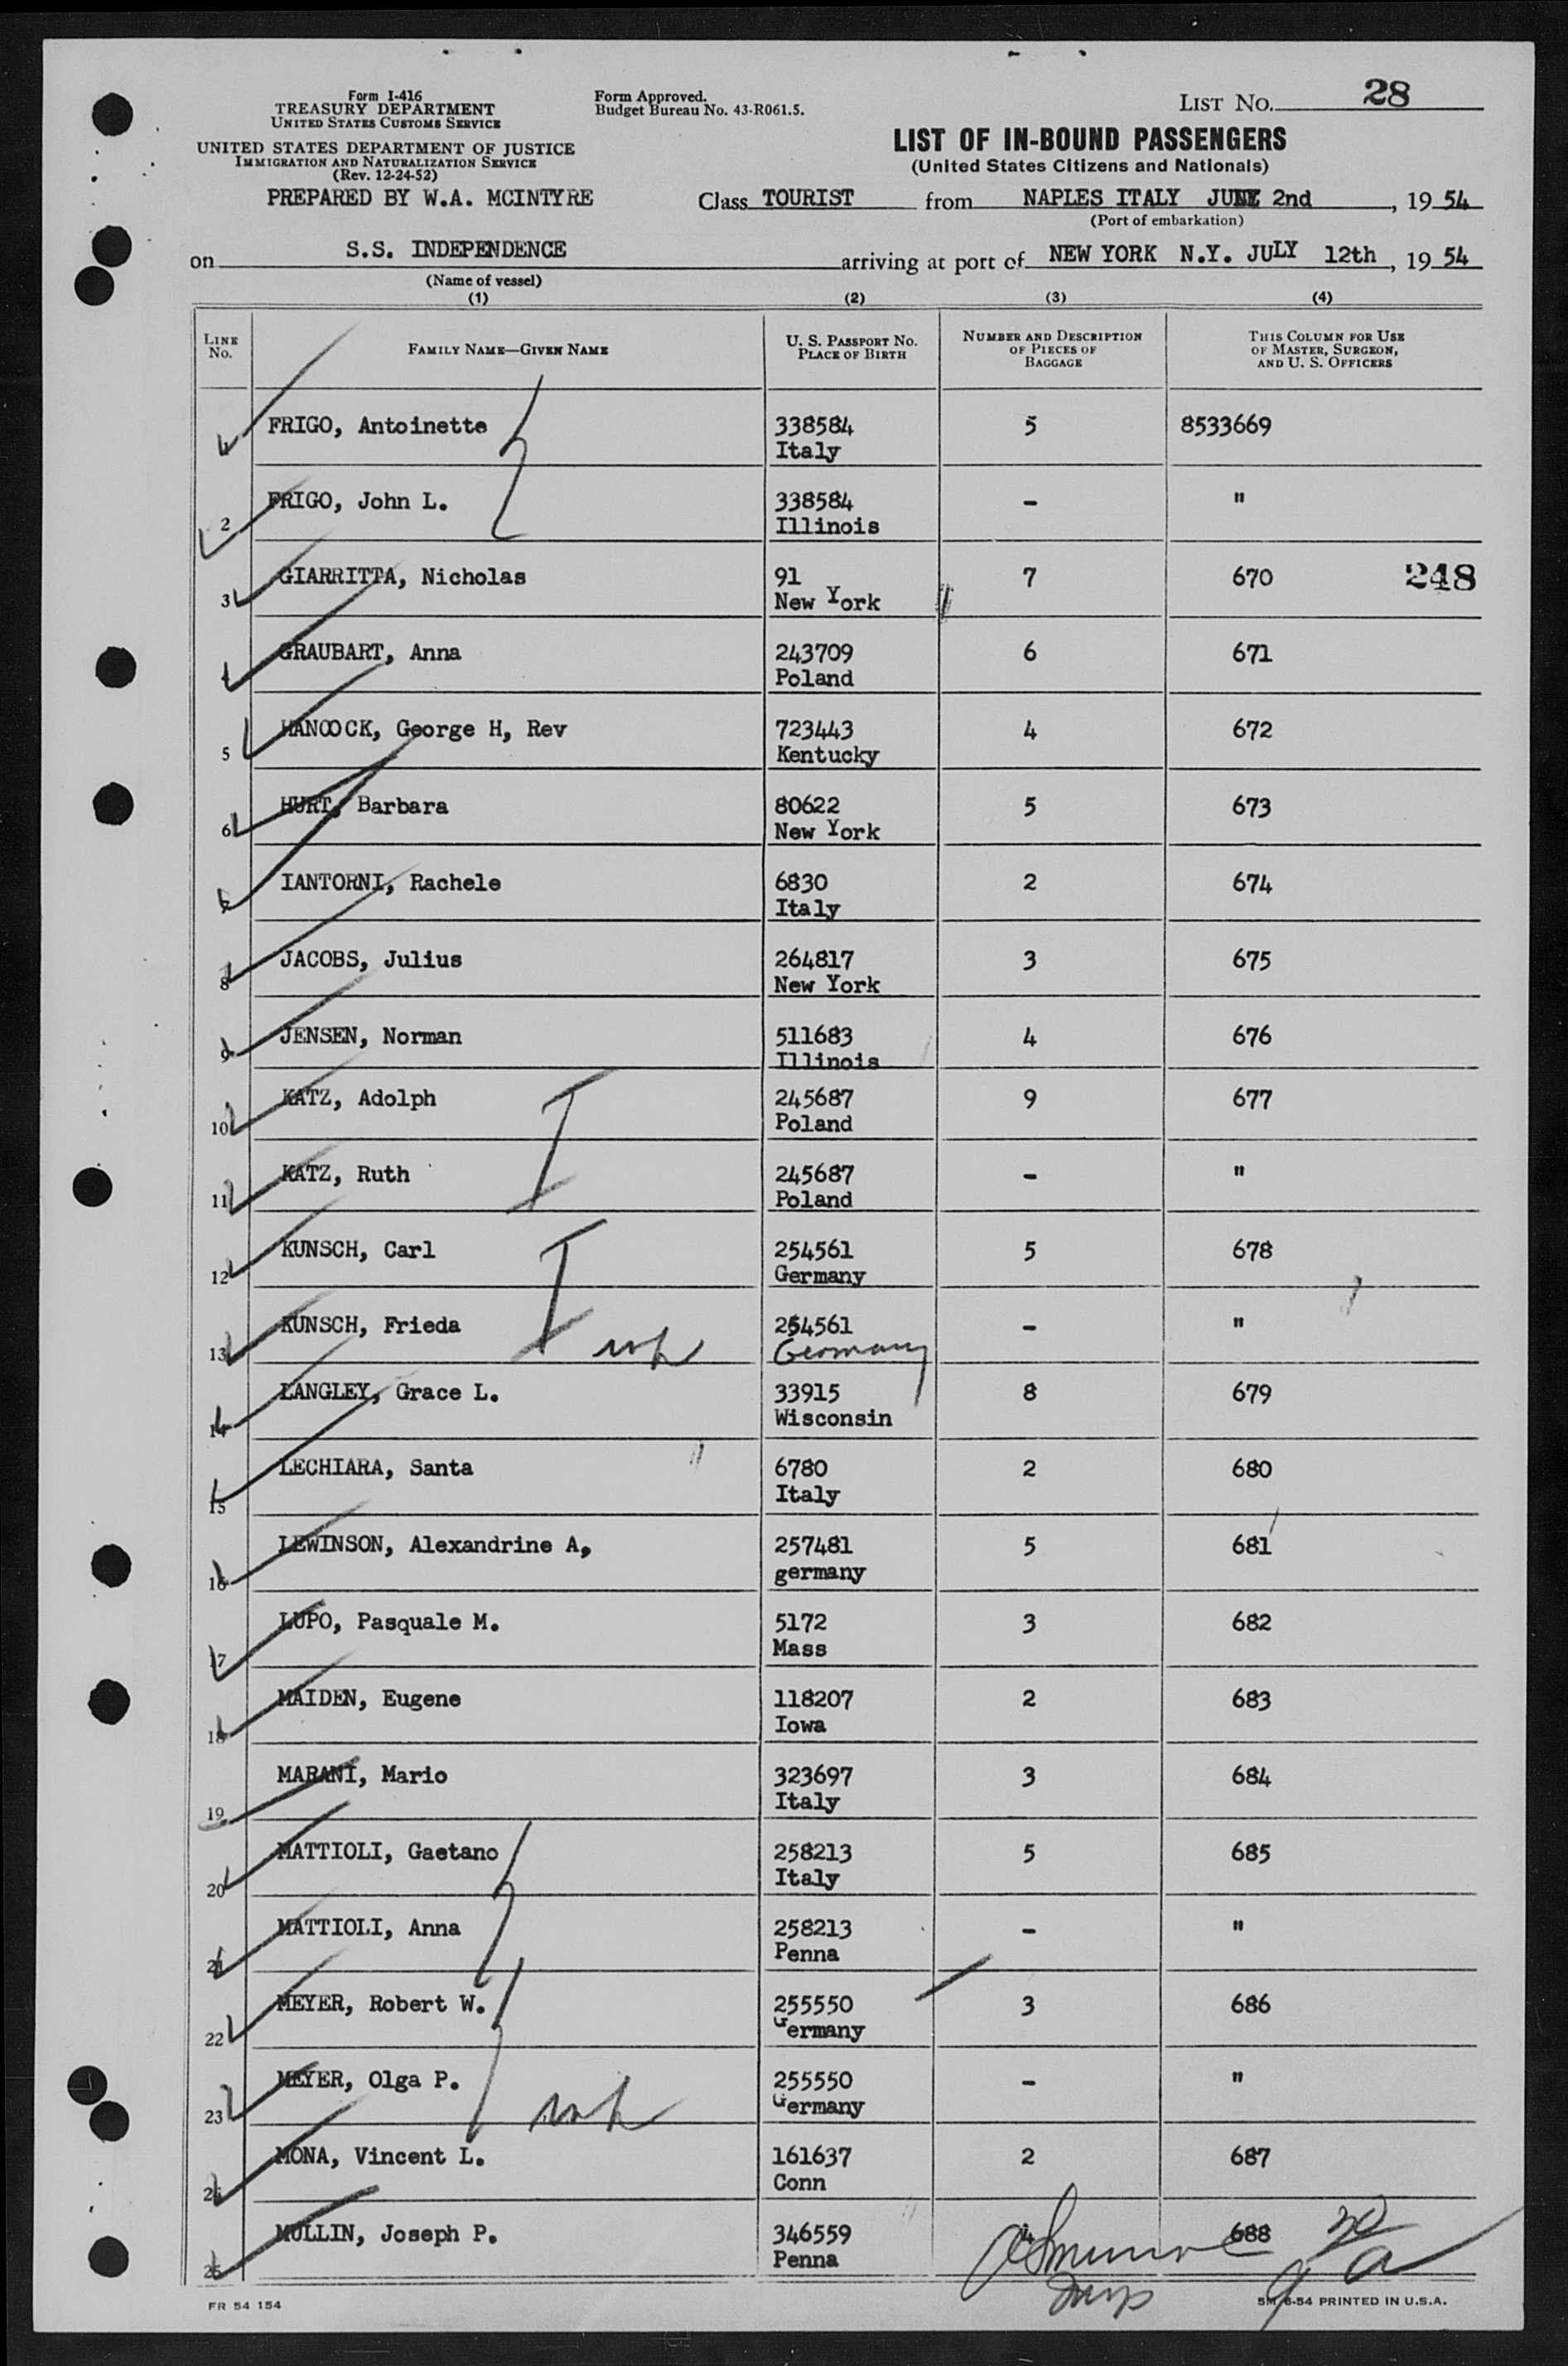 Form I-416
TREASURY DEPARTMENT
UNITED STATES CUSTOMS SERVICE
UNITED STATES DEPARTMENT OF JUSTICE
IMMIGRATION AND NATURALIZATION SERVICE
(Rev. 12-24-52)
PREPARED BY W.A. MCINTYRE
Form Approved.
Budget Bureau No. 43-R061.5.
LIST NO. 28
LIST OF IN-BOUND PASSENGERS
(United States Citizens and Nationals)
Class TOURIST from NAPLES ITALY JUNE 2nd, 19 54
(Port of embarkation)
on S.S. INDEPENDENCE arriving at port of NEW YORK N.Y. JULY 12th, 19 54
(Name of vessel)
(1) (2) (3) (4)
LINE No. FAMILY NAME—GIVEN NAME U. S. PASSPORT NO. PLACE OF BIRTH NUMBER AND DESCRIPTION OF PIECES OF BAGGAGE THIS COLUMN FOR USE OF MASTER, SURGEON, AND U. S. OFFICERS
1 FRIGO, Antoinette 338584 5 8533669
Italy
2 FRIGO, John L. 338584 - "
Illinois
3 GIARRITTA, Nicholas 91 7 670 248
New York
4 GRAUBART, Anna 243709 6 671
Poland
5 HANCOCK, George H, Rev 723443 4 672
Kentucky
6 HURT, Barbara 80622 5 673
New York
7 IANTORNI, Rachele 6830 2 674
Italy
8 JACOBS, Julius 264817 3 675
New York
9 JENSEN, Norman 511683 4 676
Illinois
10 KATZ, Adolph 245687 9 677
Poland
11 KATZ, Ruth 245687 - "
Poland
12 KUNSCH, Carl 254561 5 678
Germany
13 KUNSCH, Frieda 254561 - "
Germany
14 LANGLEY, Grace L. 33915 8 679
Wisconsin
15 LECHIARA, Santa 6780 2 680
Italy
16 LEWINSON, Alexandrine A, 257481 5 681
germany
17 LUPO, Pasquale M. 5172 3 682
Mass
18 MAIDEN, Eugene 118207 2 683
Iowa
19 MARANI, Mario 323697 3 684
Italy
20 MATTIOLI, Gaetano 258213 5 685
Italy
21 MATTIOLI, Anna 258213 - "
Penna
22 MEYER, Robert W. 255550 3 686
Germany
23 MEYER, Olga P. 255550 - "
Germany
24 MONA, Vincent L. 161637 2 687
Conn
25 MULLIN, Joseph P. 346559 688
Penna
FR 54 154
5M 6-54 PRINTED IN U.S.A.